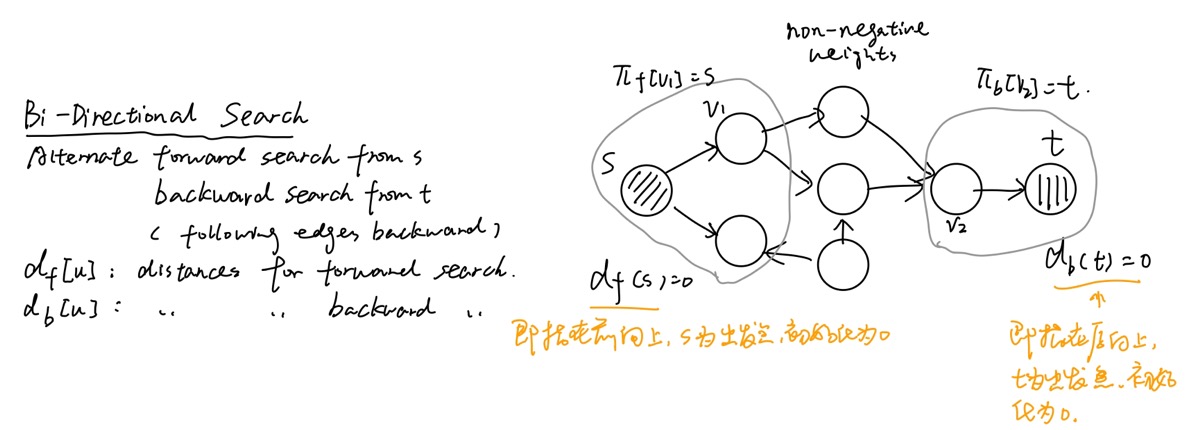 Bi-Directional Search
Alternate forward search from s
backward search from t
( following edges backward )
df[u] : distances for forward search.
db[u] : " " backward "
non-negative
weights
Πf[v1] = s
Πb[v2] = t.
v1
s
t
v2
df(s) = 0
db(t) = 0
即指在前向上, s为出发点, 初始化为0
即指在后向上,
t为出发点, 初始
化为0.